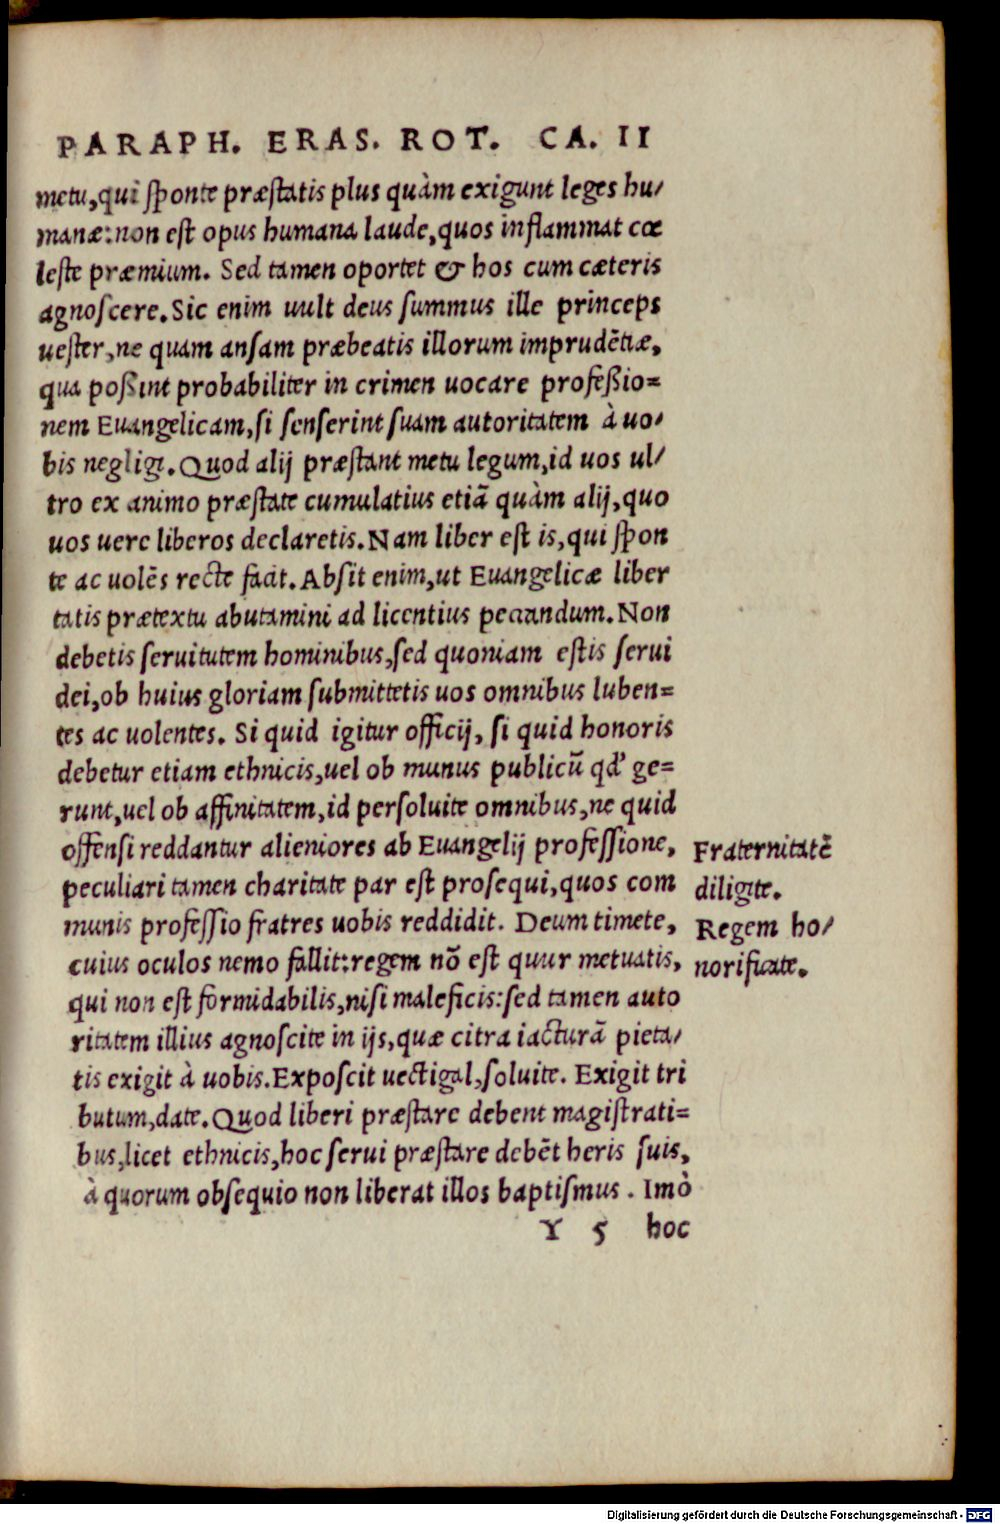 PARAPH. ERAS. ROT. CA. II
metu,qui sponte præstatis plus quàm exigunt leges hu/
manæ:non est opus humana laude,quos inflammat cœ
leste præmium. Sed tamen oportet & hos cum cæteris
agnoscere. Sic enim uult deus summus ille princeps
uester,ne quam ansam præbeatis illorum imprudẽtiæ,
qua poßint probabiliter in crimen uocare profeßio=
nem Euangelicam,si senserint suam autoritatem à uo/
bis negligi. Quod alij præstant metu legum,id uos ul/
tro ex animo præstate cumulatius etiã quàm alij,quo
uos uere liberos declaretis. Nam liber est is,qui spon
te ac uolẽs recte facit. Absit enim,ut Euangelicæ liber
tatis prætextu abutamini ad licentius peccandum. Non
debetis seruitutem hominibus,sed quoniam estis serui
dei,ob huius gloriam submittetis uos omnibus luben=
tes ac uolentes. Si quid igitur officij, si quid honoris
debetur etiam ethnicis,uel ob munus publicũ qd' ge=
runt,uel ob affinitatem,id persoluite omnibus,ne quid
offensi reddantur alieniores ab Euangelij professione,
peculiari tamen charitate par est prosequi,quos com
munis professio fratres uobis reddidit. Deum timete,
cuius oculos nemo fallit:regem nõ est quur metuatis,
qui non est formidabilis,nisi maleficis:sed tamen auto
ritatem illius agnoscite in ijs,quæ citra iacturã pieta/
tis exigit à uobis. Exposcit uectigal,soluite. Exigit tri
butum,date. Quod liberi præstare debent magistrati=
bus,licet ethnicis,hoc serui præstare debẽt heris suis,
à quorum obsequio non liberat illos baptismus . Imò
Y 5 hoc
Fraternitatẽ
diligite.
Regem ho/
norificate.
Digitalisierung gefördert durch die Deutsche Forschungsgemeinschaft - DFG